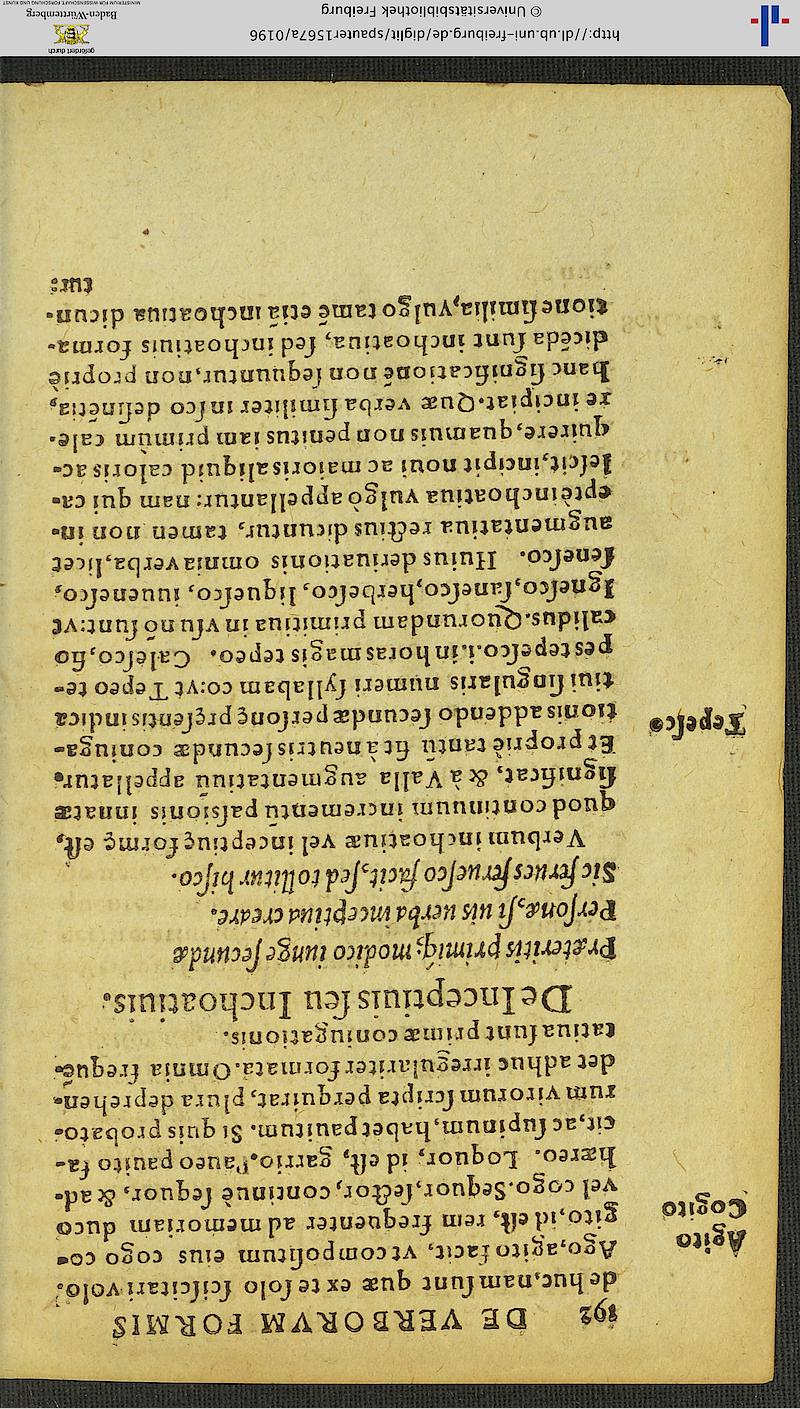 192 DE VERBORVM FORMIS
de huc, nam sunt quæ ex te solo sciscitari volo.
Ago, agito facit, vt compositum eius cogo co-
gito, id est, rem frequenter ad memoriam duco
vel cogo. Sequor, sector, continuè sequor, & ad-
hæreo. Loquor, id est, garrio. Paueo pauito fa-
cit, ac supinum, habet pauitum. Si quis probato-
rum virorum scripta perquirat, plura deprehen-
det adhuc irregulariter formata. Omnia freque-
tatiua sunt primæ coniugationis.
Agito
Cogito
De Inceptiuis seu Inchoatiuis.
Præteritis primiq; modico iunge secundæ
Personæ, si uis uerba inceptiua creare.
Sic strucs struesco facit, sed tollitur hisco.
Verbum inchoatiuæ vel inceptiuę formę est,
quod continuum incrementū passionis innatæ
significat, & à Valla augmentatiuū appellatur.
Et propriè tantū fit à neutris secundæ coniuga-
tionis addendo secundæ personę pręsentis indica
tiui singularis numeri syllabam co: vt Tepeo te-
pes tepesco .i. in horas magis tepeo. Calesco, fio
calidus. Quorundam primitiua in vsu nō sunt: vt
Ignesco, sanesco, herbesco, liquesco, iuuenesco,
senesco. Huius deriuationis omnia verba, licet
augmentatiua rectius dicuntur, tamen non in-
eptè inchoatiua vulgò appellantur: nam qui ca-
lescit, incipit noui ac maioris aliquid caloris ac-
quirere, quamuis non penitus iam primum cale-
re incipiat. Quæ verba similiter in sco desinētia,
hanc significationē non sequuntur, non propriè
dicēda sunt inchoatiua, sed inchoatiuis forma-
tione similia, vulgo tamē etiā inchoatiua dicun-
tur:
Tepesco
http://dl.ub.uni-freiburg.de/diglit/spauter1567a/0196
© Universitätsbibliothek Freiburg
gefördert durch
Baden-Württemberg
MINISTERIUM FÜR WISSENSCHAFT, FORSCHUNG UND KUNST